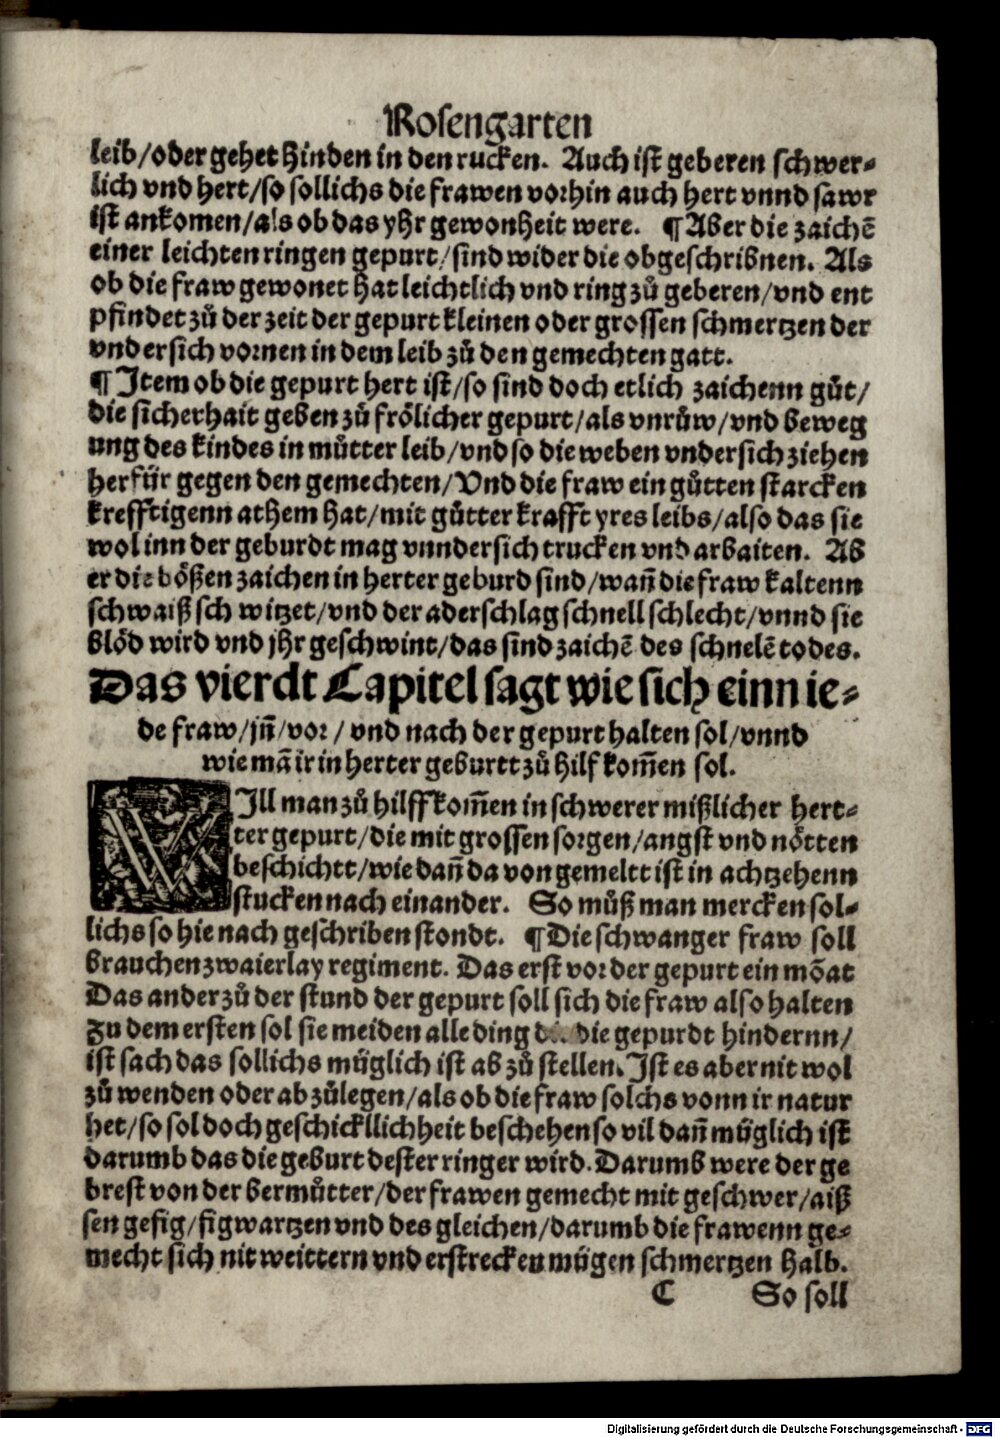 Rosengarten
leib/oder gehet hinden in den rucken. Auch ist geberen schwer⸗
lich vnd hert/so sollichs die frawen vorhin auch hert vnnd sawr
ist ankomen/als ob das yhr gewonheit were. ¶ Aber die zaichē
einer leichten ringen gepurt/sind wider die obgeschribnen. Als
ob die fraw gewonet hat leichtlich vnd ring zů geberen/vnd ent
pfindet zů der zeit der gepurt kleinen oder grossen schmertzen der
vndersich vornen in dem leib zů den gemechten gatt.
¶ Item ob die gepurt hert ist/so sind doch etlich zaichenn gůt/
die sicherhait geben zů frölicher gepurt/als vnrůw/vnd beweg
ung des kindes in můtter leib/vnd so die weben vndersich ziehen
herfür gegen den gemechten/Vnd die fraw ein gůtten starcken
krefftigenn athem hat/mit gůtter krafft yres leibs/also das sie
wol inn der geburdt mag vnndersich trucken vnd arbaiten. Ab
er die bößen zaichen in herter geburd sind/wañ die fraw kaltenn
schwaiß schwitzet/vnd der aderschlag schnell schlecht/vnnd sie
blöd wird vnd jhr geschwint/das sind zaichē des schnelē todes.
Das vierdt Capitel sagt wie sich einn ie⸗
de fraw/jñ/vor/ vnd nach der gepurt halten sol/vnnd
wie mā ir in herter geburtt zů hilf kom̄en sol.
WIll man zů hilff kom̄en in schwerer mißlicher hert⸗
ter gepurt/die mit grossen sorgen/angst vnd nötten
beschichtt/wie dañ da von gemeltt ist in achtzehenn
stucken nach einander. So můß man mercken sol⸗
lichs so hie nach geschriben stondt. ¶ Die schwanger fraw soll
brauchen zwaierlay regiment. Das erst vor der gepurt ein mōat
Das ander zů der stund der gepurt soll sich die fraw also halten
Zu dem ersten sol sie meiden alle ding die gepurdt hindernn/
ist sach das sollichs müglich ist ab zů stellen. Ist es aber nit wol
zů wenden oder ab zůlegen/als ob die fraw solchs vonn ir natur
het/so sol doch geschickllichheit beschehen so vil dañ müglich ist
darumb das die geburt dester ringer wird. Darumb were der ge
brest von der bermůtter/der frawen gemecht mit geschwer/aiß
sen gesig/figwartzen vnd des gleichen/darumb die frawenn ge⸗
mecht sich nit weittern vnd erstrecken mügen schmertzen halb.
C So soll
Digitalisierung gefördert durch die Deutsche Forschungsgemeinschaft - DFG